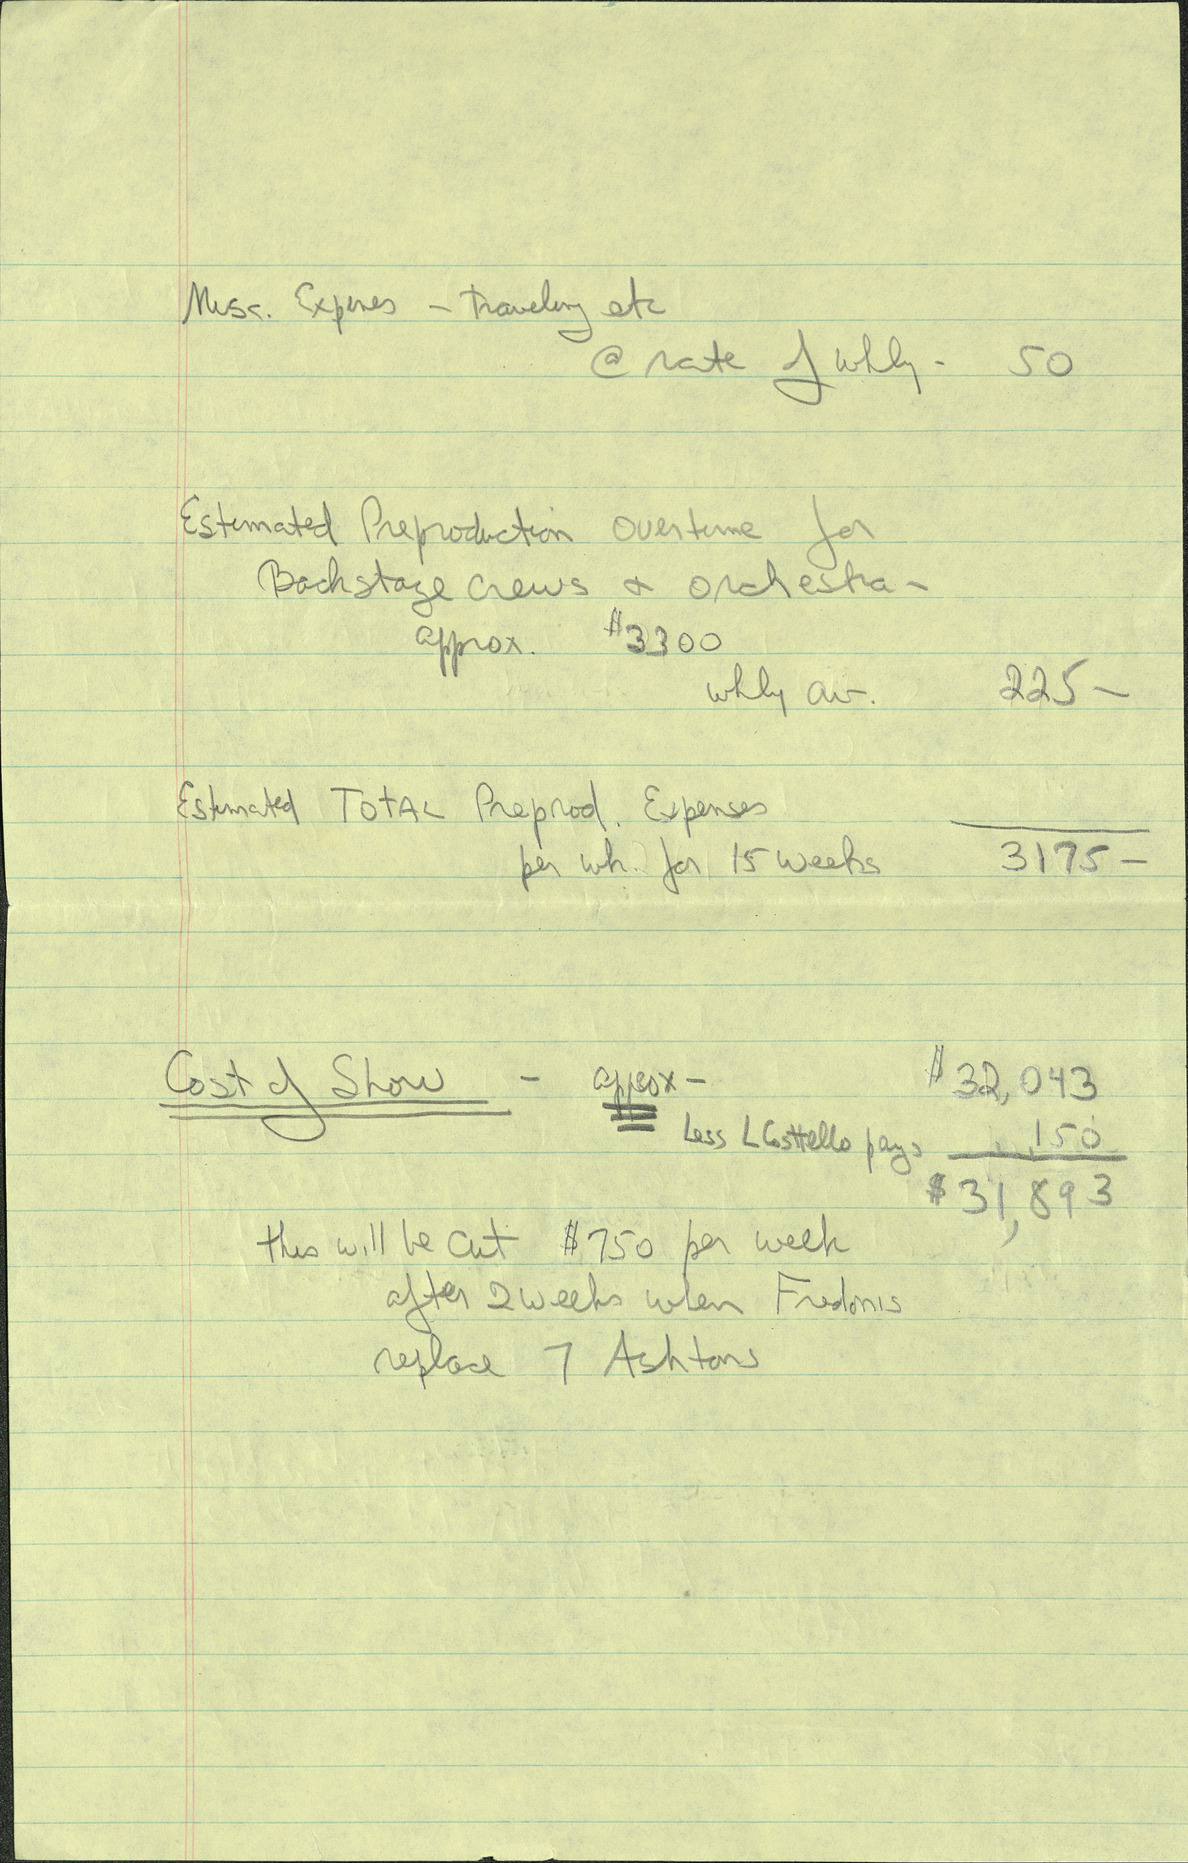 Misc. Expenses - Traveling etc
@ rate of wkly - 50
Estimated Preproduction overtime for
Backstage crews & orchestra -
approx. $3300
wkly av. 225 -
Estimated TOTAL Preprod. Expenses
per wk. for 15 weeks 3175 -
Cost of Show - approx - $32,043
Less L Costtello pays 150
$31,893
this will be cut $750 per week
after 2 weeks when Fredonis
replace 7 Ashtons